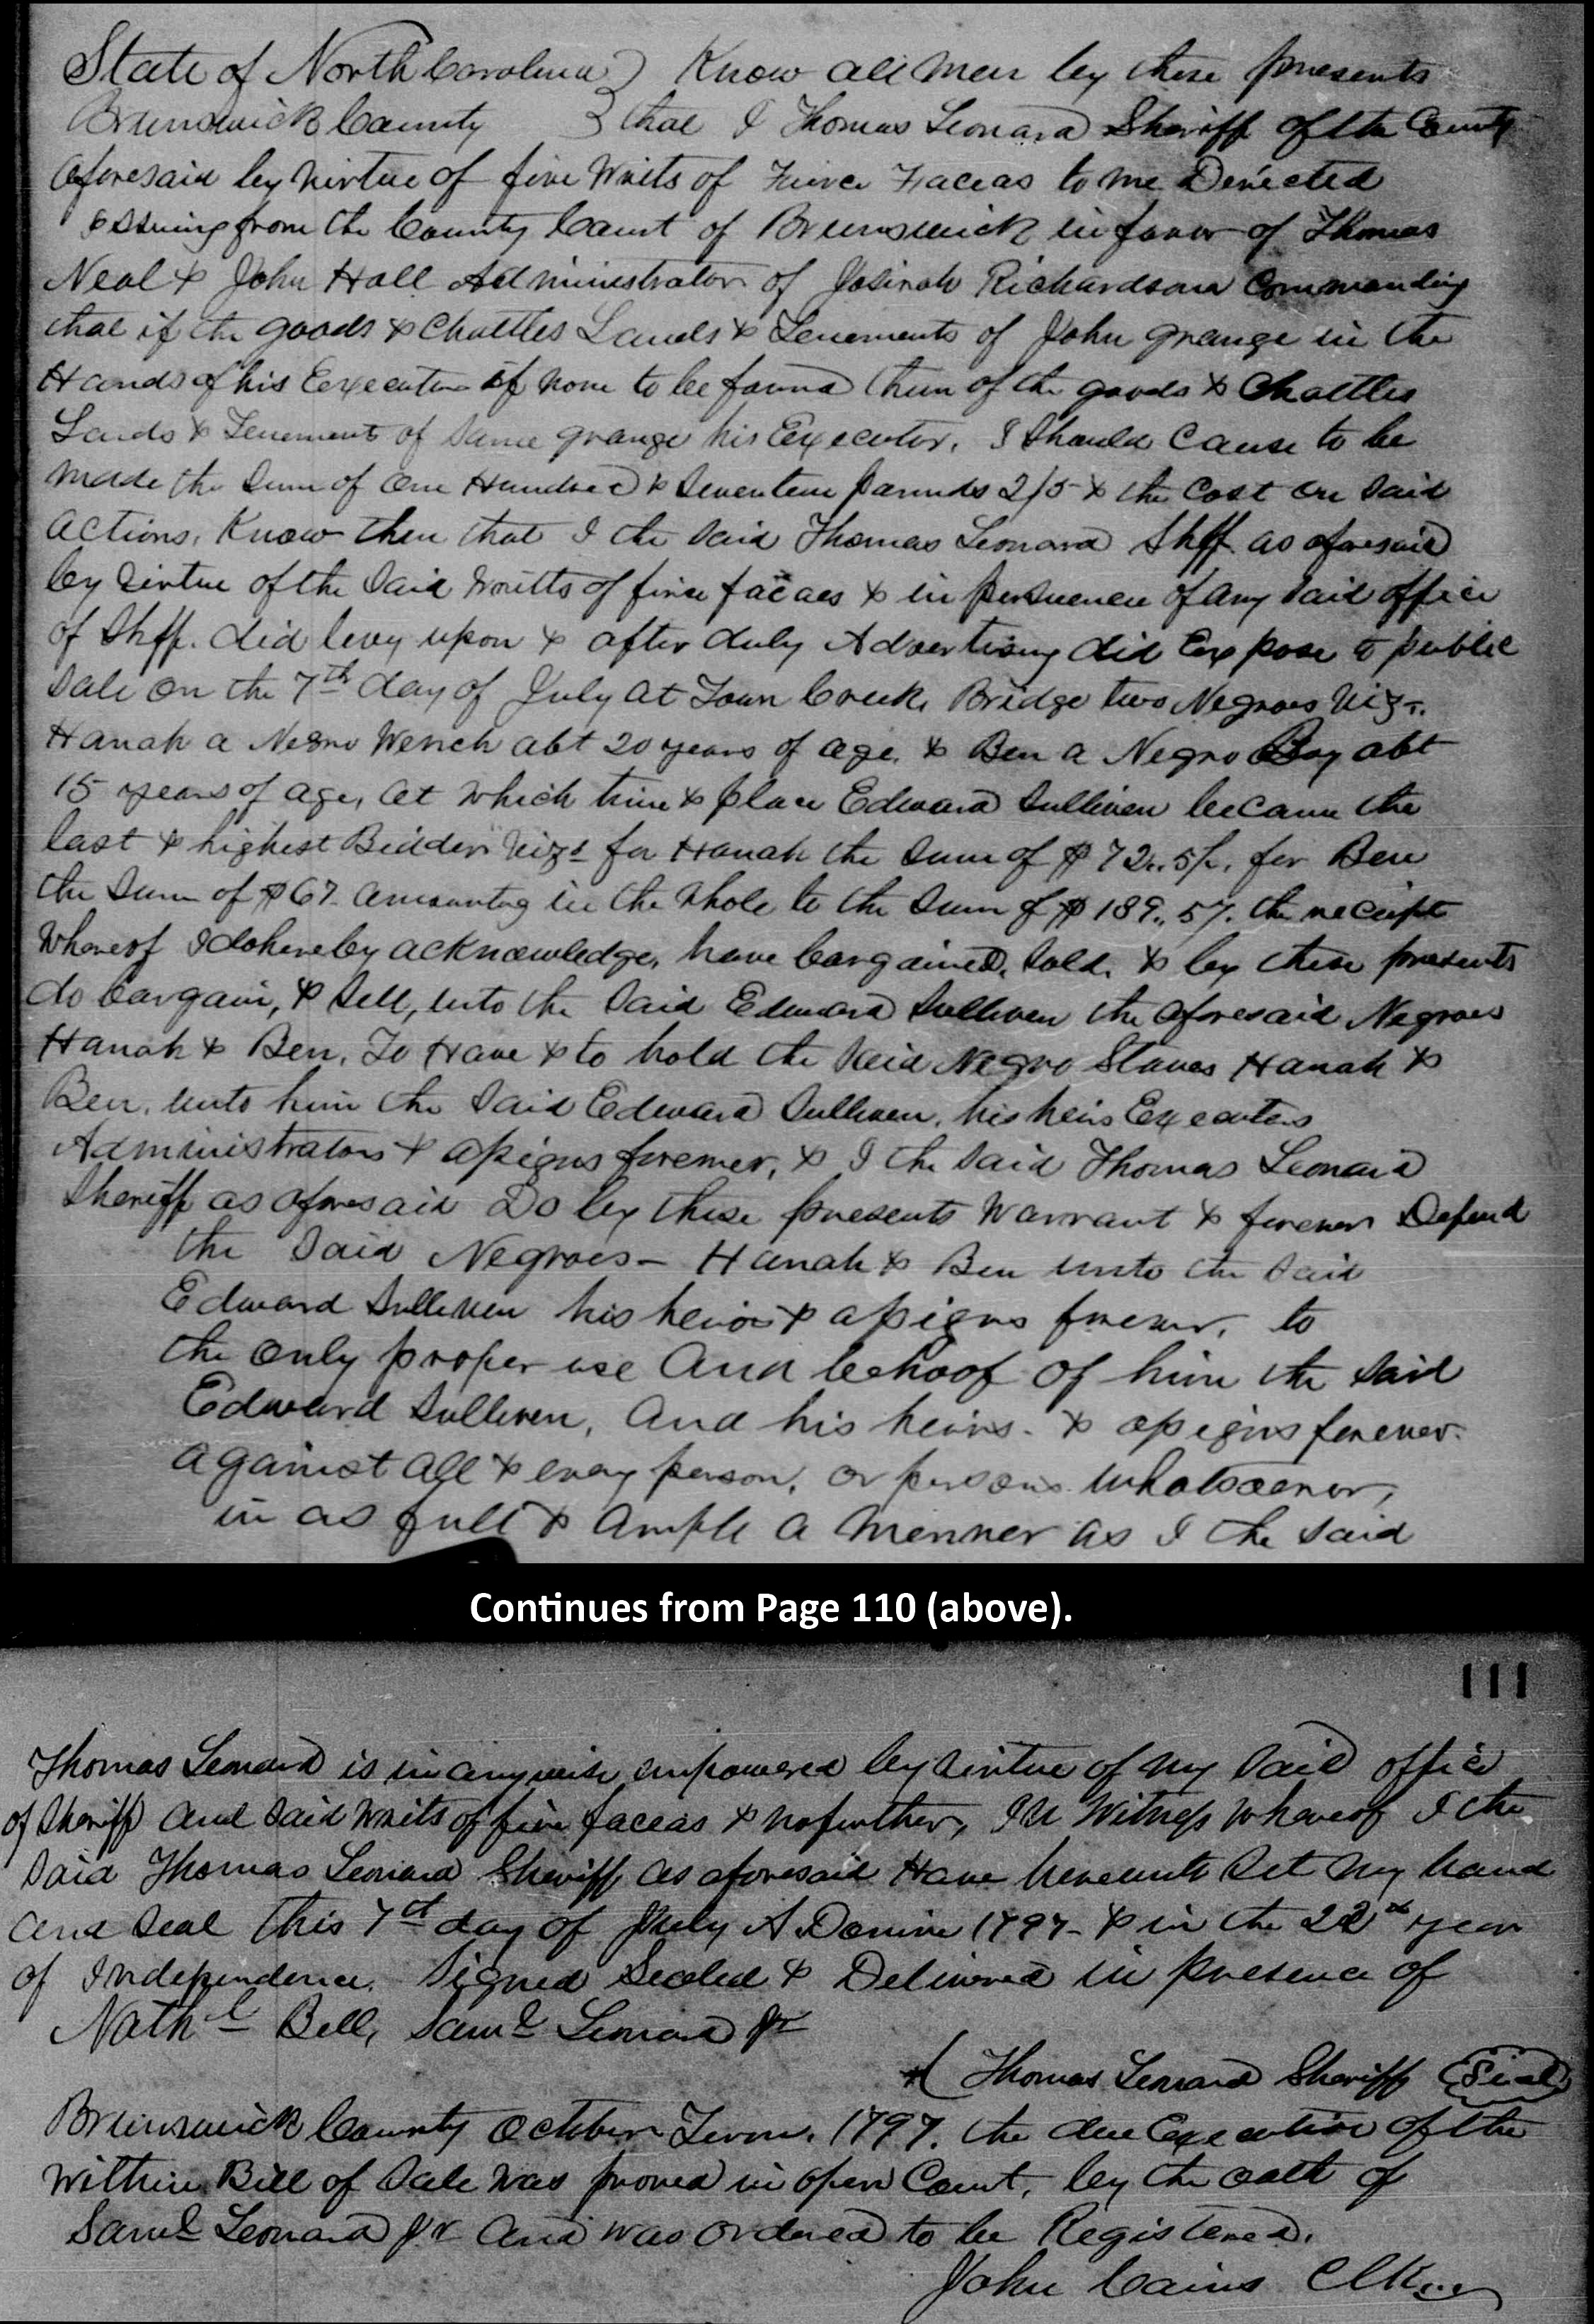 State of North Carolina } Know all Men by these presents
Brunswick County } that I Thomas Leonard Sheriff of the County
aforesaid by virtue of five Writs of Fierce Faceas to me Derected
Essuing from the County Court of Brunswick in favor of Thomas
Neal & John Hall Administrators of Richardson Commanding
that if the goods & Chattles Lands & Tenements of John grange in the
Hands of his Executor if none to be found then of the goods & Chattles
Lands & Tenements of Same grange his Executor, I Should Cause to be
made the Sum of One Hundred & Seventeen pounds 2/5 & the Cost on Said
Actions, Know then that I the Said Thomas Leonard Shff as aforesaid
by virtue of the Said writts of faeaes & in persuence of my Said office
of Shff. did levy upon & after duly Advertising did Expose to public
Sale on the 7th day of July at Town Creek Bridge two Negroes Viz.
Hanah a Negro Wench abt 20 years of age, & Ben a Negro Boy abt
15 years of age, at which time & place Edward Sulliven became the
last & highest Bidder Vizt for Hanah the Sum of 72..5/. for Ben
the Sum of 67 amounting in the whole to the Sum of 189..5/. the receipt
Whereof I do hereby acknowledge, have bargained, Sold, & by these presents
do bargain, & Sell, unto the Said Edward Sulliven the aforesaid Negroes
Hanah & Ben, To Have & to hold the Said Negro Slaves Hanah &
Ben, unto him the Said Edward Sulliven, his heirs Executors
Administrators & assigns forever, & I the Said Thomas Leonard
Sheriff as aforesaid Do by these presents Warrant & forever Defend
the Said Negroes - Hanah & Ben unto the Said
Edward Sulliven his heirs & assigns forever, to
the only proper use And behoof of him the Said
Edward Sulliven, And his heirs. & assigns forever.
against all & every person, or persons whatsoever,
in as full & Ample a Menner as I the Said
Continues from Page 110 (above).
111
Thomas Leonard is in anywise impowered by virtue of my Said office
of Sheriff and Said Writs of faceas & no further, In Witness Whereof I the
Said Thomas Leonard Sheriff as aforesaid Have hereunto Set my hand
and Seal this 7th day of July A Domini 1797- & in the 22d year
of Independence. Signed Sealed & Delivered in presence of
Nathl Bell, Saml Leonard Jr
Thomas Leonard Sheriff Seal
Brunswick County October Term. 1797. the due Execution of the
within Bill of Sale was proved in open Court, by the oath of
Saml Leonard Jr and was ordered to be Registered.
John Cains Clk